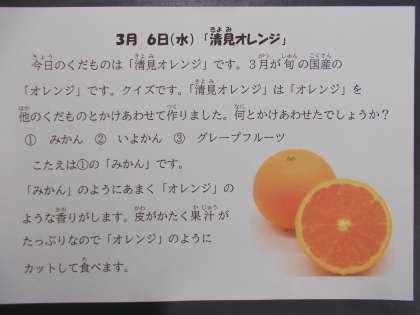 3月 6日(水) 「清見オレンジ」
今日のくだものは「清見オレンジ」です。3月が旬の国産の
「オレンジ」です。クイズです。「清見オレンジ」は「オレンジ」を
他のくだものとかけあわせて作りました。何とかけあわせたでしょうか？
① みかん ② いよかん ③ グレープフルーツ
こたえは①の「みかん」です。
「みかん」のようにあまく「オレンジ」の
ような香りがします。皮がかたく果汁が
たっぷりなので「オレンジ」のように
カットして食べます。